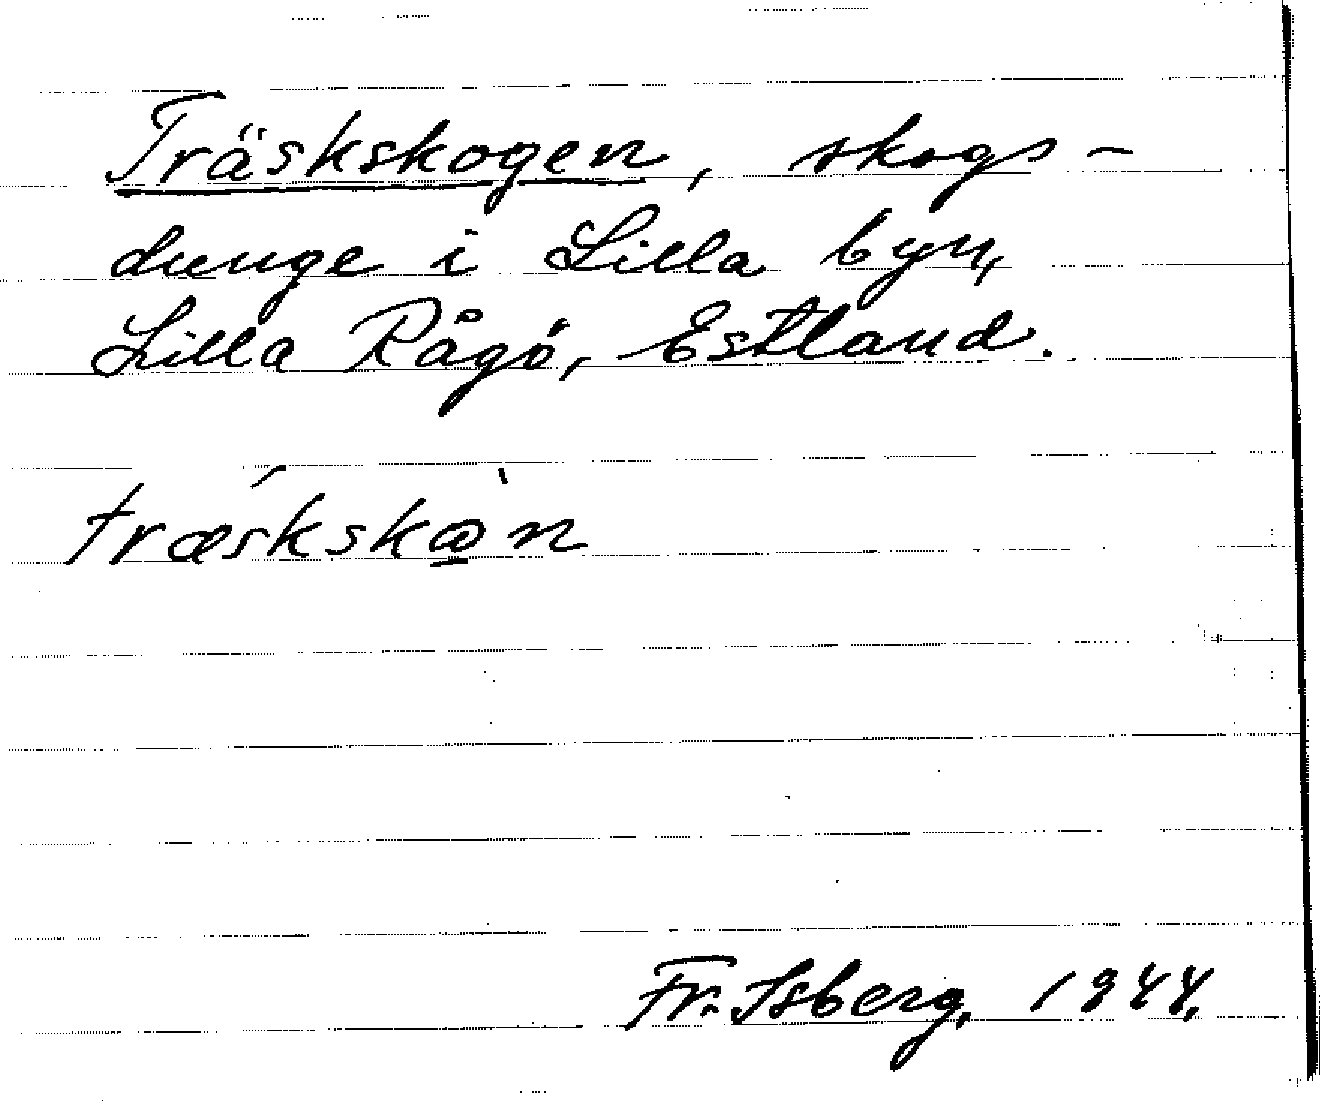 Träskskogen, skogs-
dunge i Lilla byn,
Lilla Rågö, Estland.
trǽskskὼ̠n
Fr. Isberg, 1944.